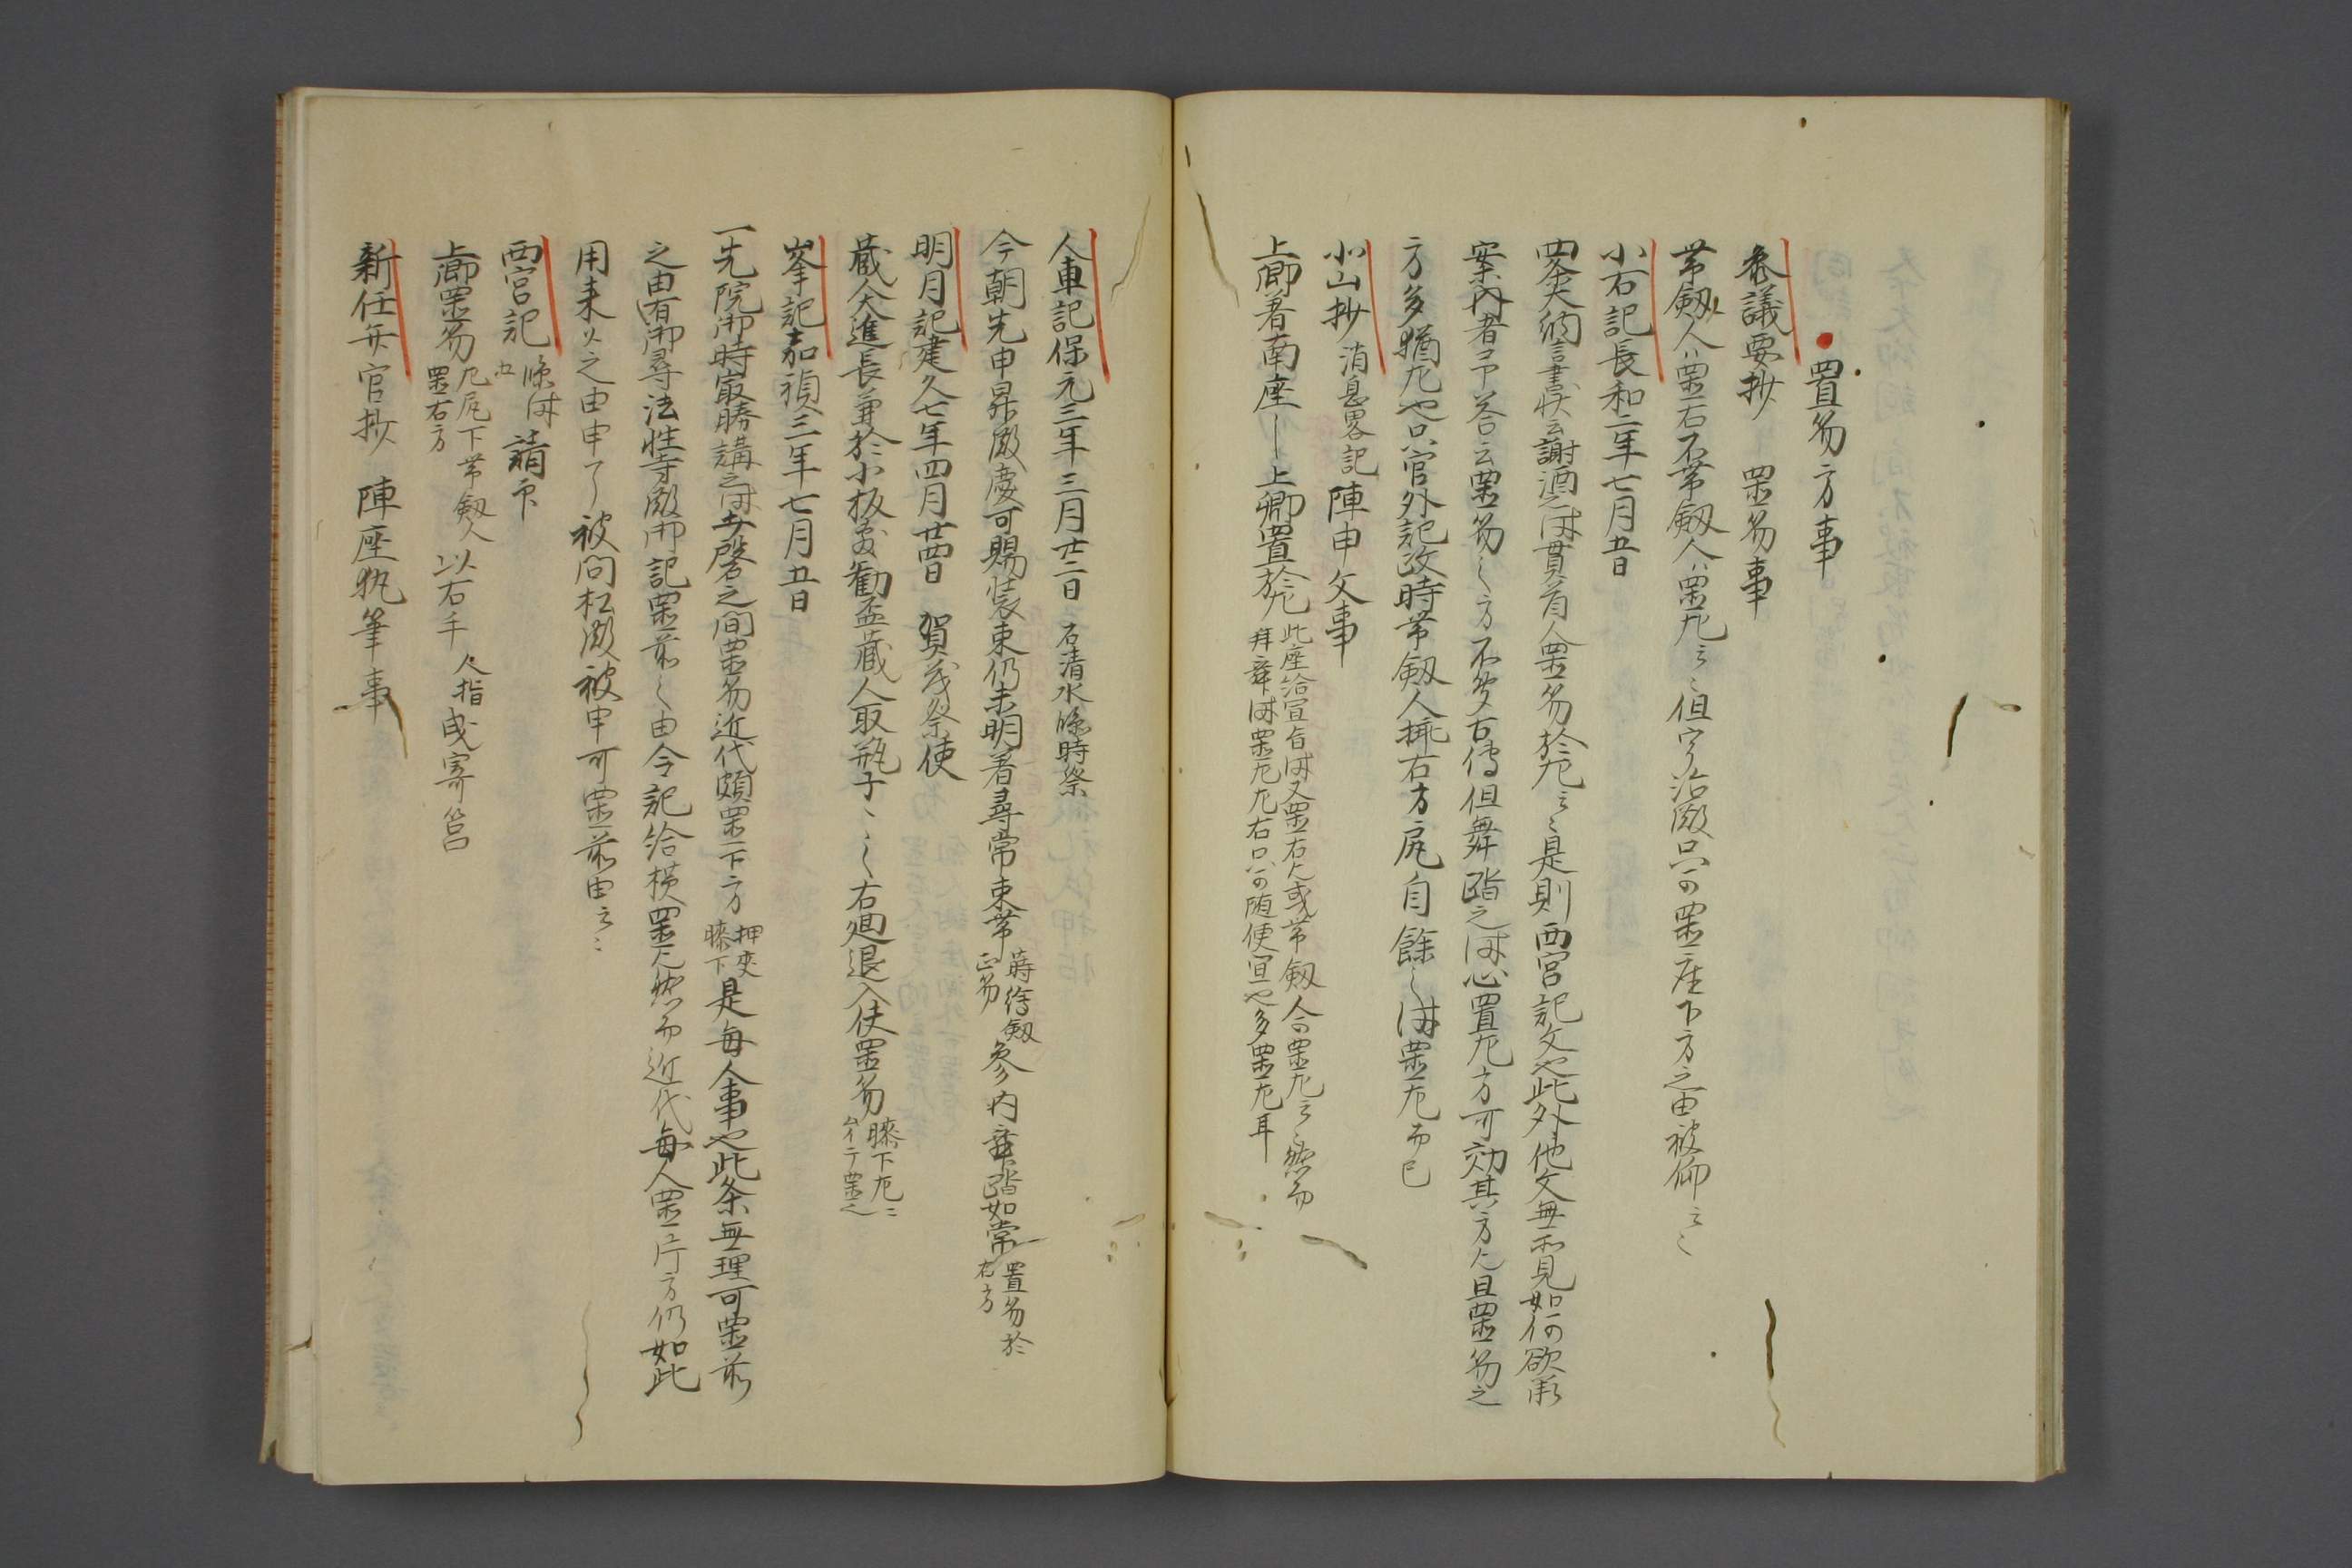 置笏方事
参議要抄　置笏事
帯剱人ハ置右不帯剱人ハ置左云々但宇治殿只可置座下方之由被仰云々
小右記長和二年七月五日
四条大納言書状云謝酒之時貫首人置笏於左云々是則西宮記文也此外他文無所見如何欲承
案内者予答云置笏之方不知古傳但舞踏之時必置左方可効其方也且置笏之
方多猶左也只官外記政時帯剱人挿右方尻自餘之時置左而已
北山抄 消息畧記 陣申文事
上卿着南座― 上卿置於左 此座給宣旨時又置右也或帯剱人合置左云々然而
拜舞時置左左右只可随便宜也多置左耳
人車記保元三年三月廿二日 石清水臨時祭
今朝先申昇殿慶可賜装束仍未明着尋常束帯 蒔繪剱
正笏 参内舞踏如常 置笏於
右方
明月記建久七年四月廿四日　賀茂祭使
蔵人大進長兼於小板敷勧盃蔵人取瓶子〻〻〻右廻退入使置笏 膝下左ニ
峯記嘉禎三年七月五日
一先院御時最勝講之時女房之間置笏近代頗置下方 押夾
膝下 是毎人事也此条無理可置前
之由有御尋法性寺殿御記置前之由令記給横置也然而近代毎人置片方仍如此
用来以之由申了被問松殿被申可置前由云々
西宮記 臨時
五 請印
上卿置笏 左尻下帯剱人
置右方 以右手 人指 曳寄筥
新任弁官抄　陣座執筆事